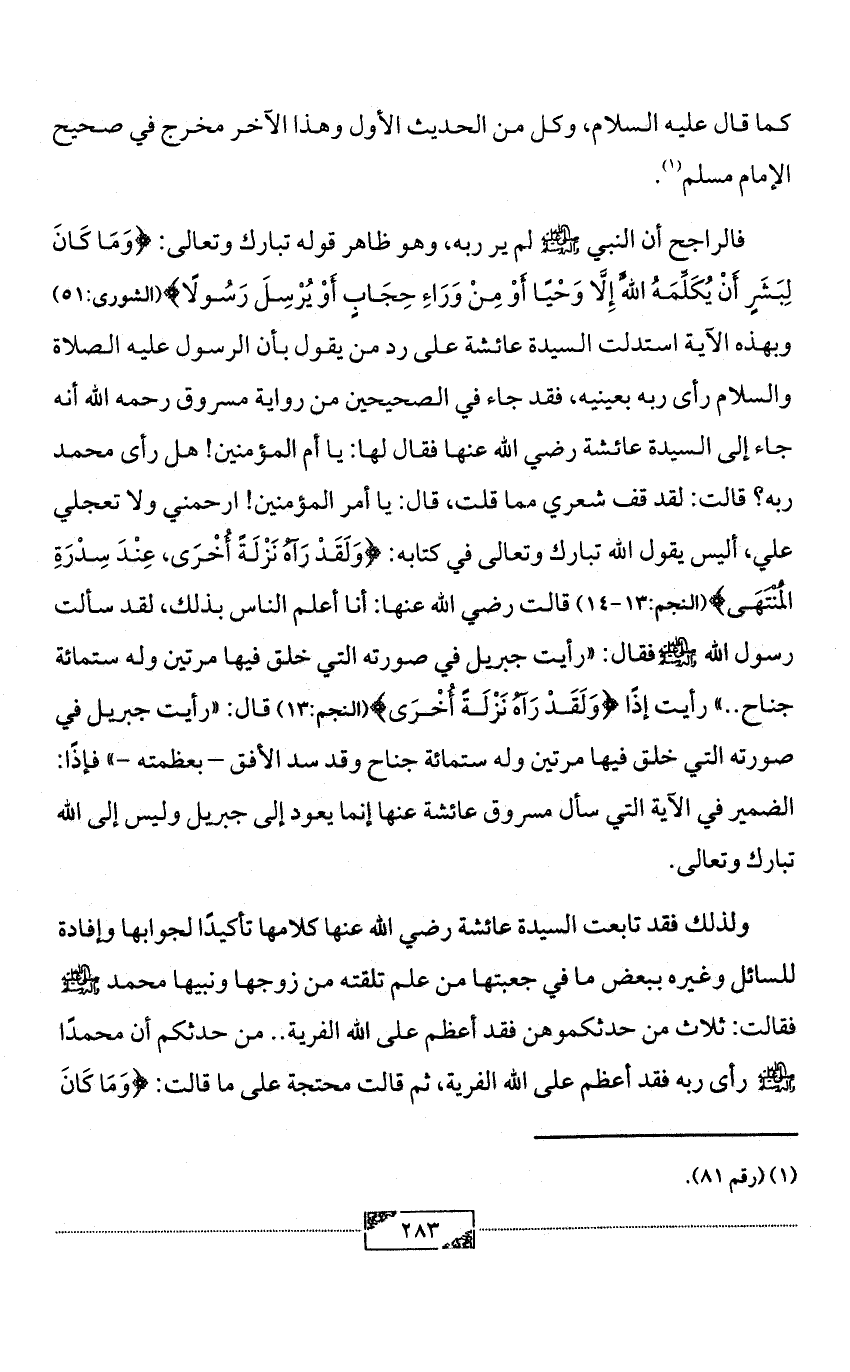 كما قال عليه السلام، وكل من الحديث الأول وهذا الآخر مخرج في صحيح
الإمام مسلم(١).
فالراجح أن النبي ﷺ لم ير ربه، وهو ظاهر قوله تبارك وتعالى: ﴿وَمَا كَانَ
لِبَشَرٍ أَنْ يُكَلِّمَهُ اللهُ إِلَّا وَحْيًا أَوْ مِنْ وَرَاءِ حِجَابٍ أَوْ يُرْسِلَ رَسُولًا﴾(الشورى:٥١)
وبهذه الآية استدلت السيدة عائشة على رد من يقول بأن الرسول عليه الصلاة
والسلام رأى ربه بعينيه، فقد جاء في الصحيحين من رواية مسروق رحمه الله أنه
جاء إلى السيدة عائشة رضي الله عنها فقال لها: يا أم المؤمنين! هل رأى محمد
ربه؟ قالت: لقد قف شعري مما قلت، قال: يا أمر المؤمنين! ارحمني ولا تعجلي
علي، أليس يقول الله تبارك وتعالى في كتابه: ﴿وَلَقَدْ رَآهُ نَزْلَةً أُخْرَى، عِنْدَ سِدْرَةِ
المُنْتَهَى﴾(النجم:١٣-١٤) قالت رضي الله عنها: أنا أعلم الناس بذلك، لقد سألت
رسول الله ﷺ فقال: «رأيت جبريل في صورته التي خلق فيها مرتين وله ستمائة
جناح..» رأيت إذًا ﴿وَلَقَدْ رَآهُ نَزْلَةً أُخْرَى﴾(النجم:١٣) قال: «رأيت جبريل في
صورته التي خلق فيها مرتين وله ستمائة جناح وقد سد الأفق –بعظمته -» فإذًا:
الضمير في الآية التي سأل مسروق عائشة عنها إنما يعود إلى جبريل وليس إلى الله
تبارك وتعالى.
ولذلك فقد تابعت السيدة عائشة رضي الله عنها كلامها تأكيدًا لجوابها وإفادة
للسائل وغيره ببعض ما في جعبتها من علم تلقته من زوجها ونبيها محمد ﷺ
فقالت: ثلاث من حدثكموهن فقد أعظم على الله الفرية.. من حدثكم أن محمدًا
ﷺ رأى ربه فقد أعظم على الله الفرية، ثم قالت محتجة على ما قالت: ﴿وَمَا كَانَ
(١) (رقم ٨١).
٢٨٣